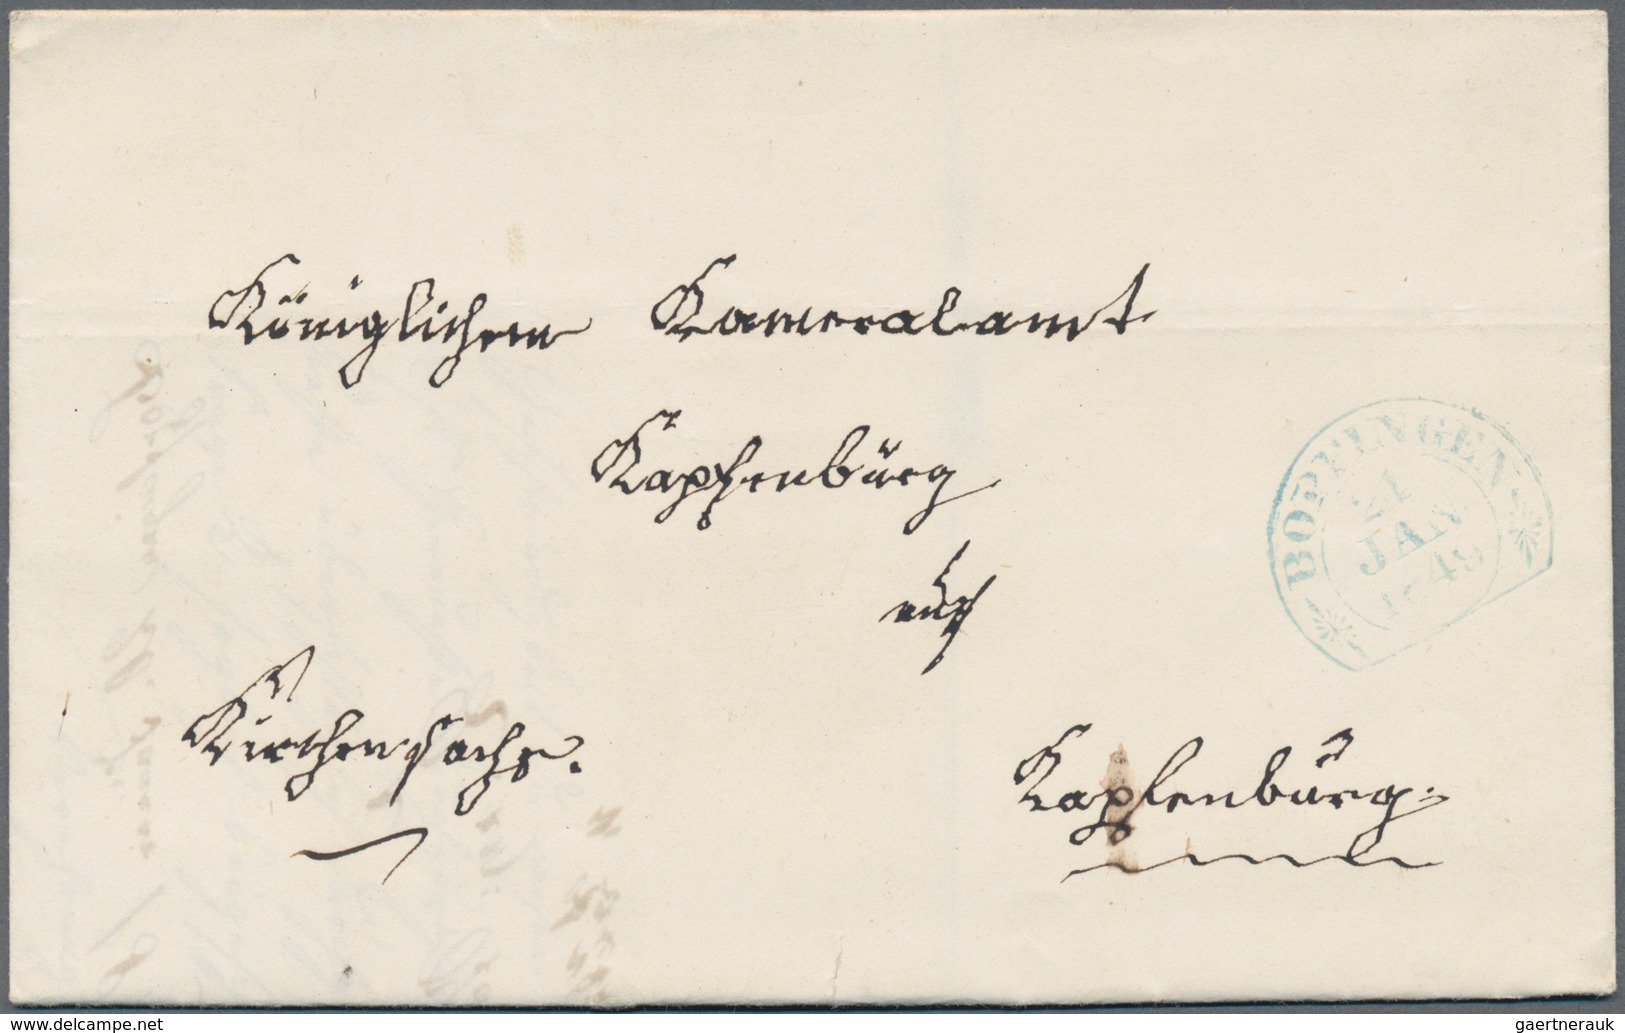 Königlichem Kameralamt
Kapfenburg
auf
Kirchensache.
Kapfenburg.
BOPFINGEN
21
JAN
1849
www.delcampe.net
gaertnerauk